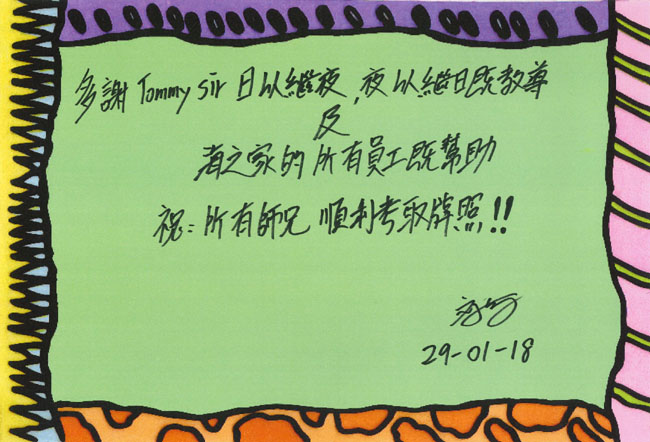 多謝 Tommy sir 日以繼夜,夜以繼日既教導
及
海之家的所有員工既幫助
祝:所有師兄 順利考取牌照!!
29-01-18